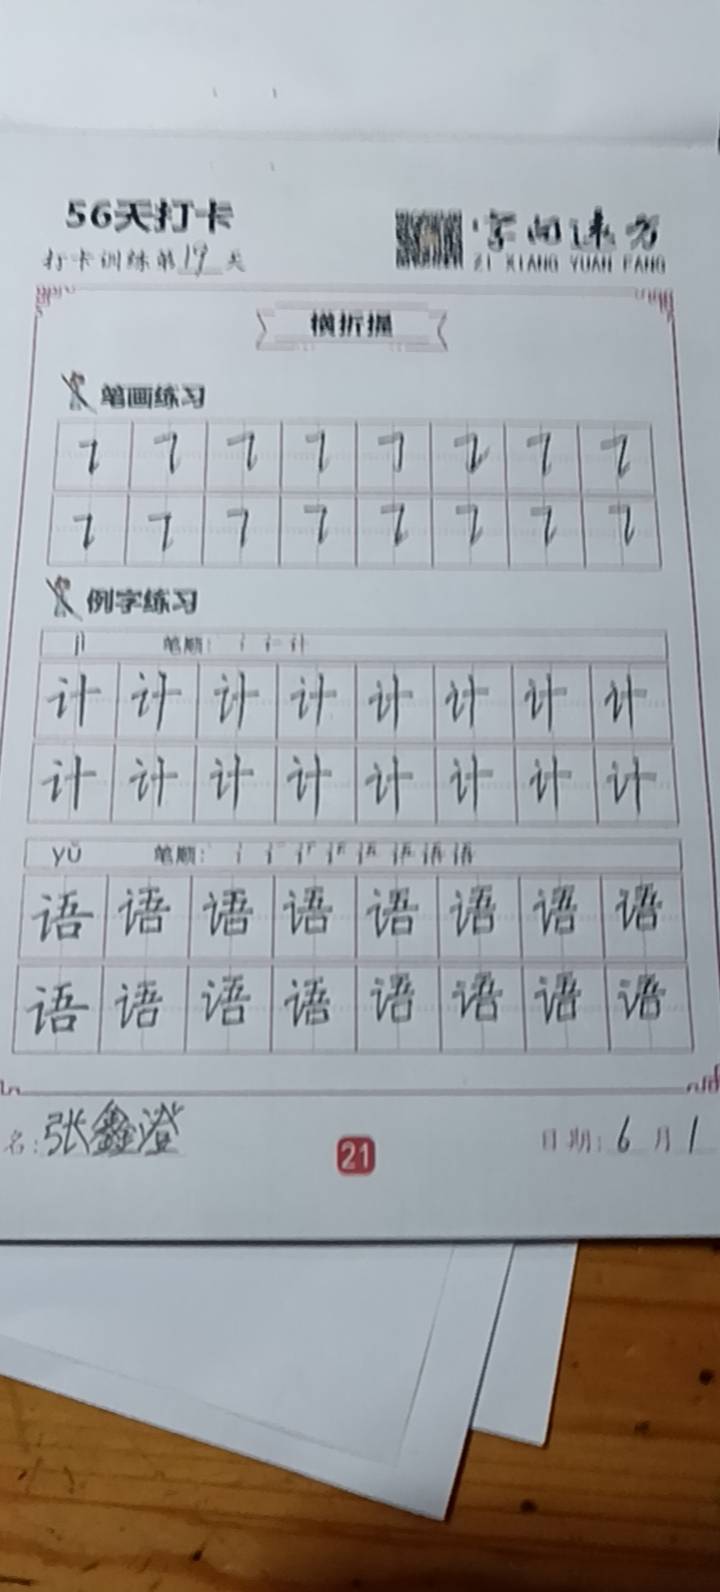 56天打卡
打卡训练第19天
ZI XIANG YUAN FANG
横折提
笔画练习
例字练习
jì 笔顺：
计 计 计 计 计 计 计 计
计 计 计 计 计 计 计 计
yǔ 笔顺：
语 语 语 语 语 语 语 语
语 语 语 语 语 语 语 语
名：张鑫澄
21
日期：6月1